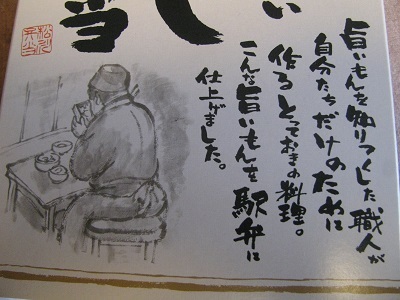 い
し
当
旨いもんを知りつくした職人が
自分たちだけのために
作るとっておきの料理。
こんな旨いもんを駅弁に
仕上げました。